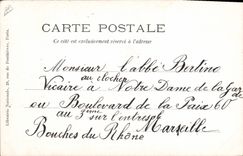 CARTE POSTALE
Ce côté est exclusivement réservé à l'adresse
Monsieur l'abbé Bertino
au clocher
Vicaire à Notre Dame de la Garde
ou Boulevard de la Paix 60
au 3ème sur l'entresol
Marseille
Bouches du Rhône